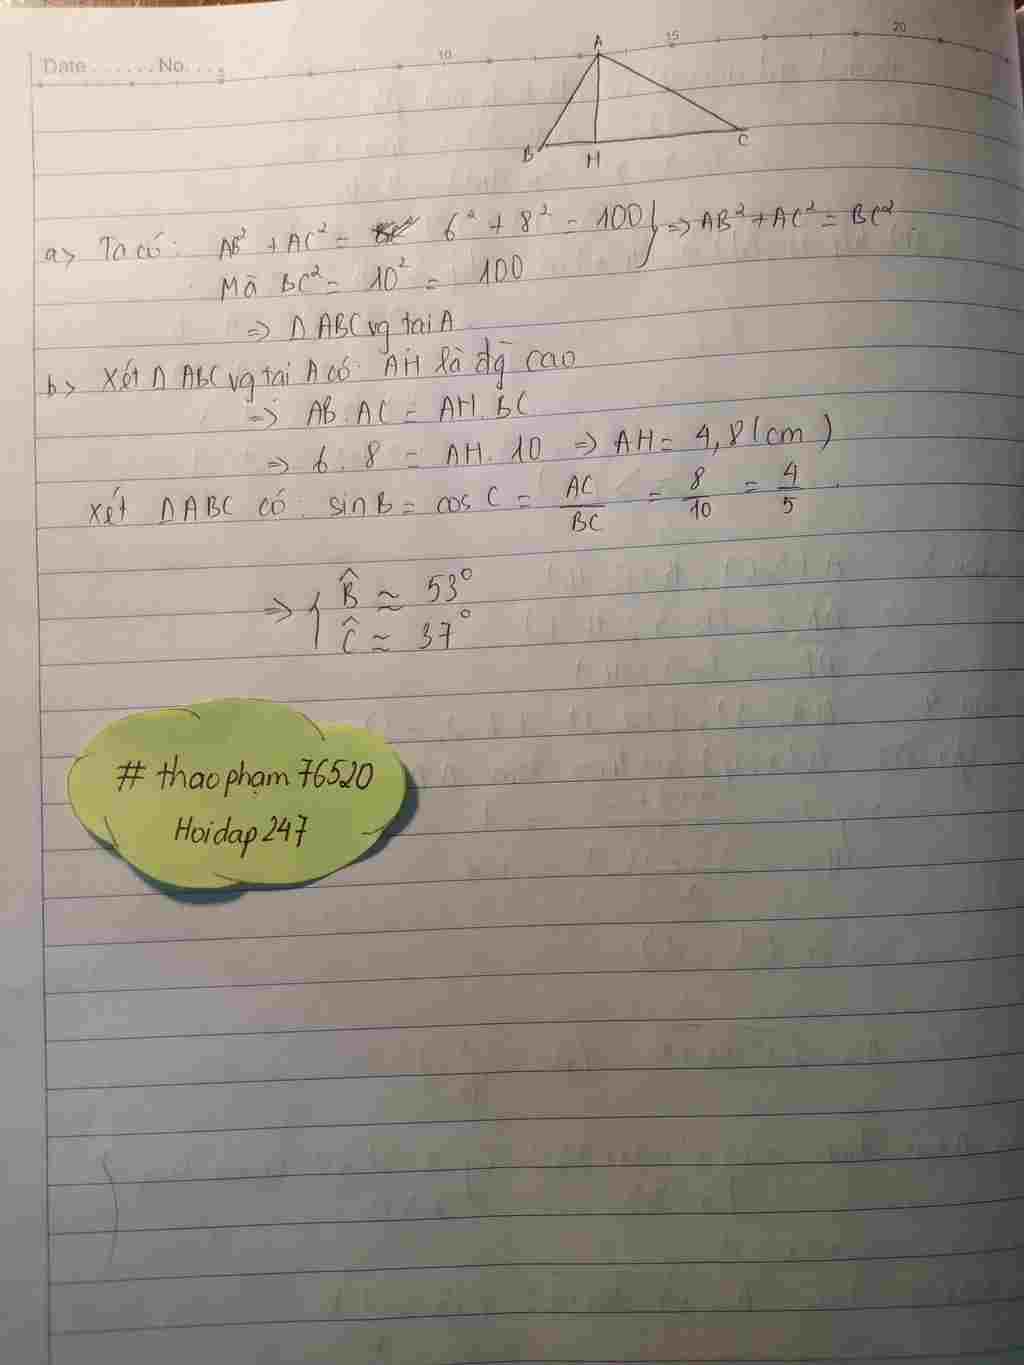 Date ...... No. ...
10
15
20
A
B
H
C
a> Ta có: AB² + AC² = 6² + 8² = 100 } => AB² + AC² = BC²
Mà BC² = 10² = 100
=> Δ ABC vg tại A
b> Xét Δ ABC vg tại A có: AH là đg cao
=> AB . AC = AH . BC
=> 6 . 8 = AH . 10 => AH = 4,8 (cm)
Xét Δ ABC có: sin B = cos C = AC/BC = 8/10 = 4/5
=> { B̂ ≈ 53°
Ĉ ≈ 37°
# thaophạm76520
Hoidap247